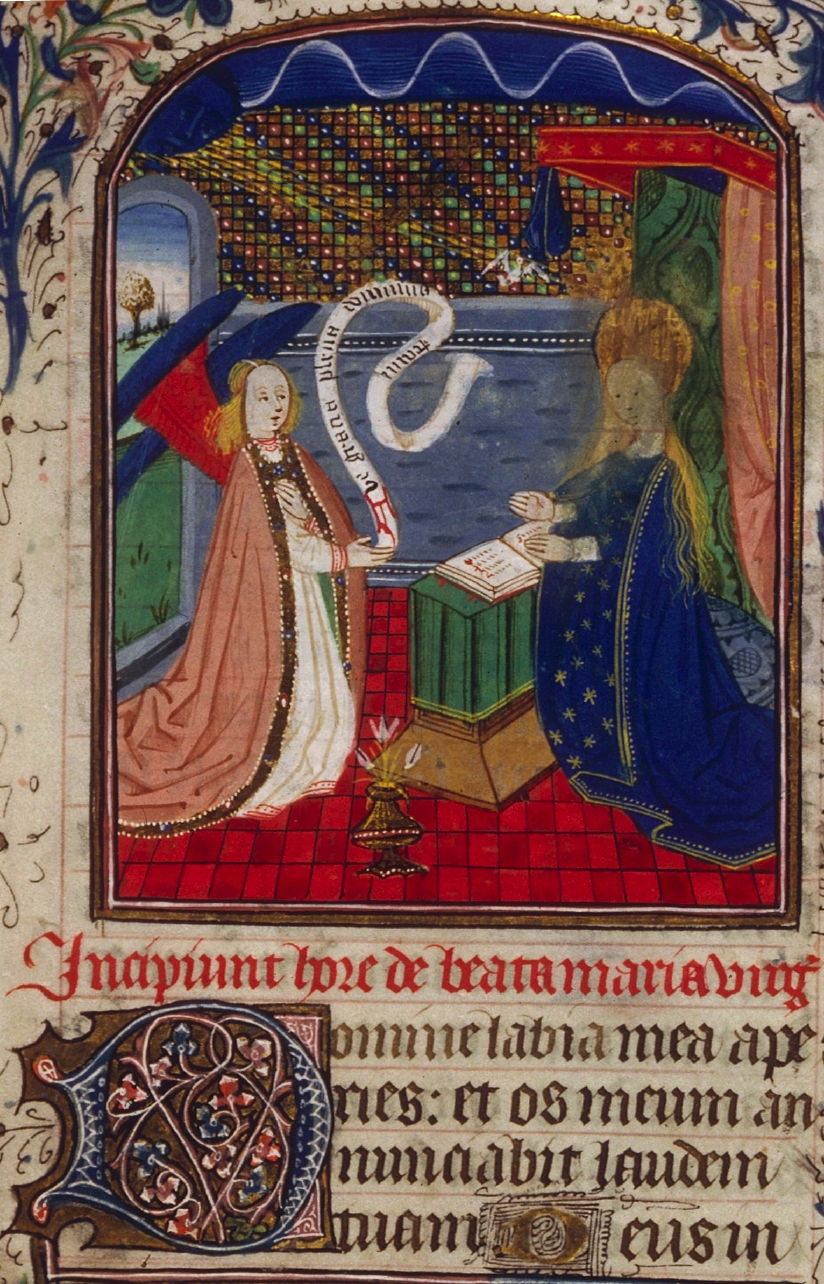 Ave gracia plena dominus
tecum
Incipiunt hore de beata maria virg
Domine labia mea ape
ries: et os meum an
nunciabit laudem
tuam Deus in